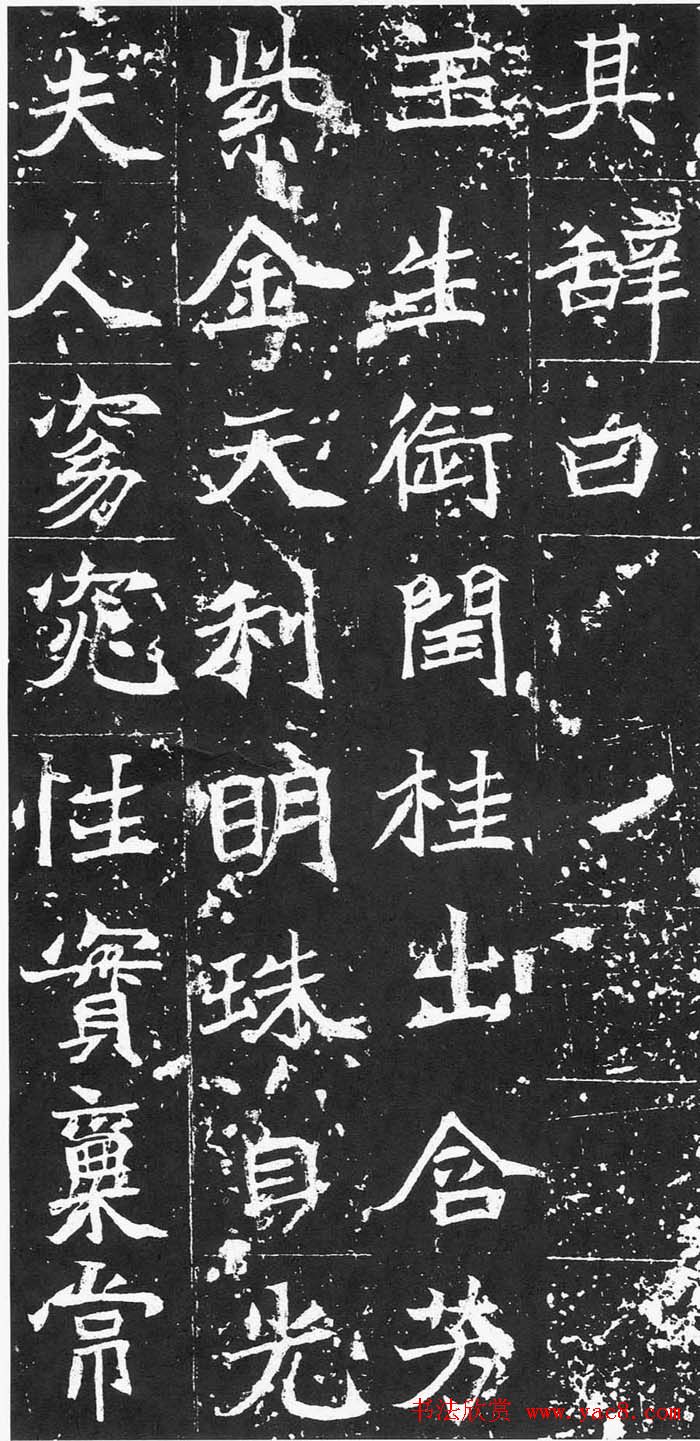 其辞曰
玉生衘閏桂出含芳
紫金天利明珠身光
夫人窈窕性實稟常
书法欣赏 www.yac8.com